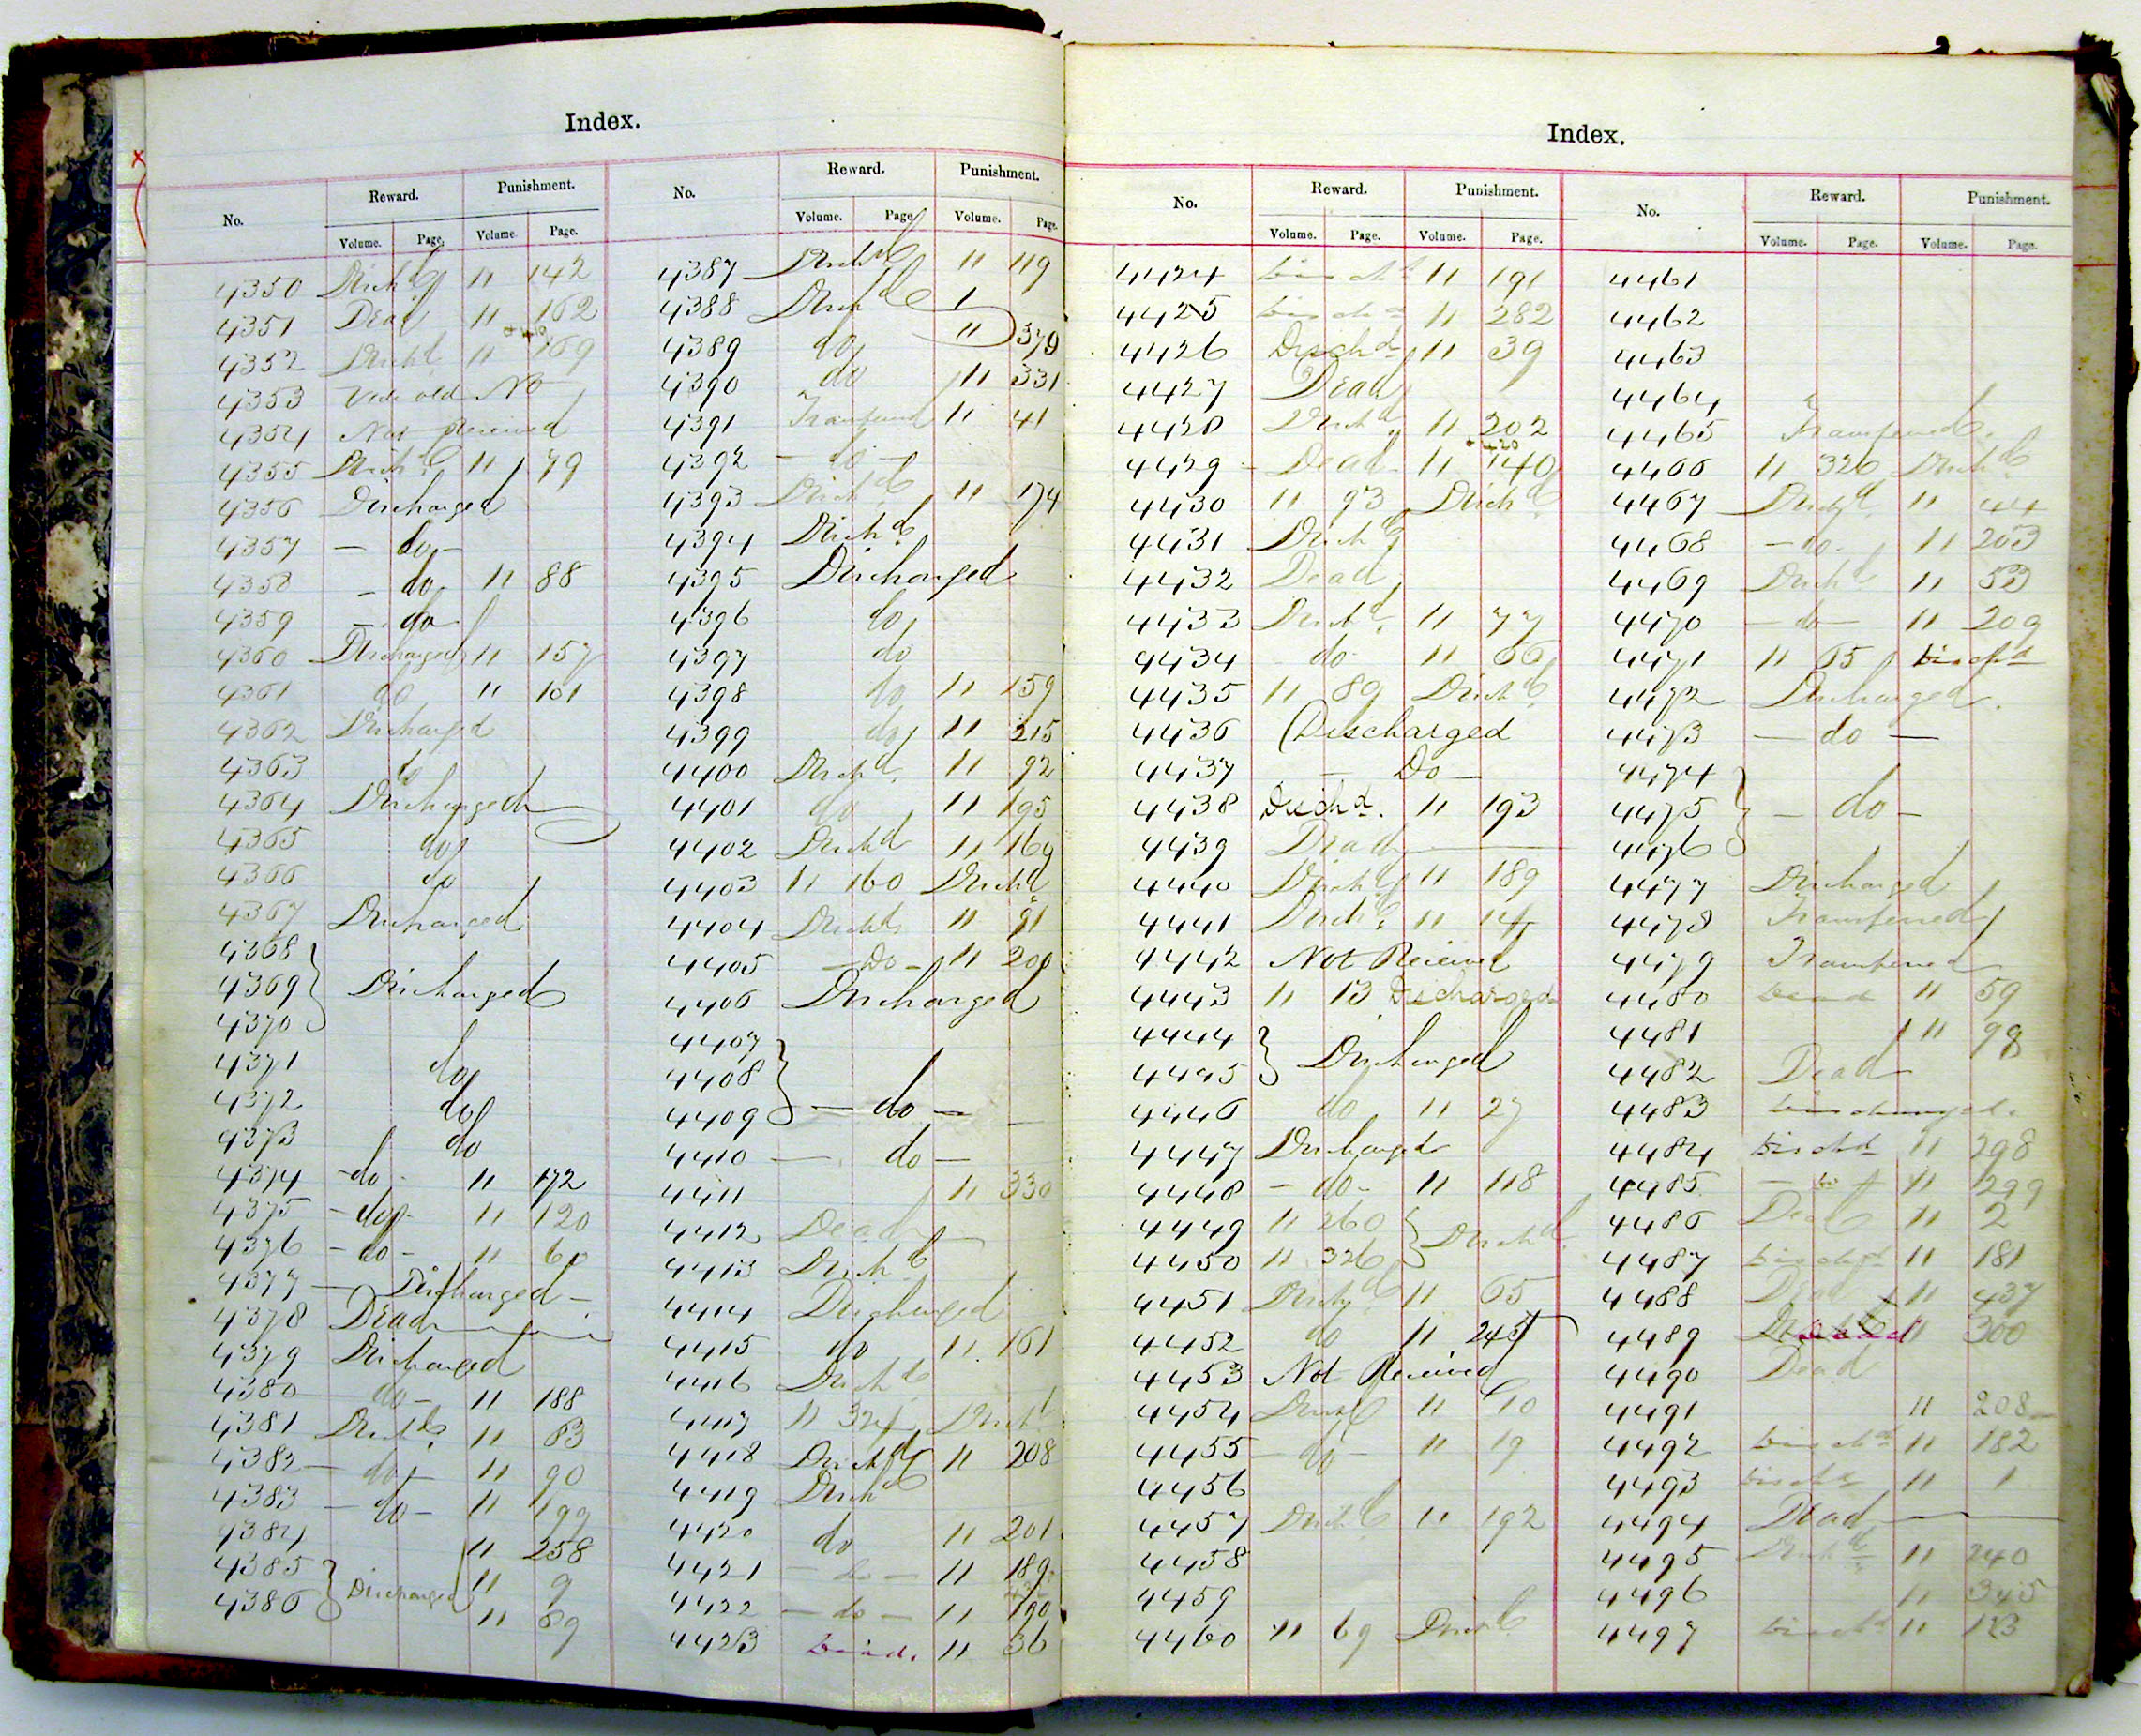 Index.
No. Reward. Punishment. No. Reward. Punishment.
Volume. Page. Volume. Page. Volume. Page. Volume. Page.
4350 Disch'd 11 142
4351 Dead 11 162
4352 Disch'd 11 169
4353 Vide old No
4354 Not Received
4355 Disch'd 11 79
4356 Discharged
4357 — do —
4358 — do 11 88
4359 — do
4360 Discharged 11 157
4361 do 11 101
4362 Discharged
4363 do
4364 Discharged
4365 do
4366 do
4367 Discharged
4368
4369 } Discharged
4370
4371 do
4372 do
4373 do
4374 -do- 11 172
4375 -do- 11 120
4376 -do- 11 60
4377 — Discharged —
4378 Dead
4379 Discharged
4380 — do — 11 188
4381 Disch'd 11 83
4382 — do — 11 90
4383 — do — 11 199
4384 11 258
4385 } Discharged 11 9
4386 11 89
4387 Disch'd 11 119
4388 Disch'd
4389 do 11 379
4390 do 11 331
4391 Transferred 11 41
4392 — do —
4393 Disch'd 11 174
4394 Disch'd
4395 Discharged
4396 do
4397 do
4398 do 11 159
4399 do 11 215
4400 Disch'd 11 92
4401 do 11 195
4402 Disch'd 11 169
4403 11 160 Disch'd
4404 Disch'd 11 91
4405 — Do — 11 200
4406 Discharged
4407
4408 }
4409 — do —
4410 — do —
4411 11 330
4412 Dead
4413 Disch'd
4414 Discharged
4415 do 11 161
4416 Disch'd
4417 11 324 Disch'd
4418 Disch'd 11 208
4419 Disch'd
4420 do 11 201
4421 — do — 11 189
4422 — do — 11 190
4423 Dead. 11 36
Index.
No. Reward. Punishment. No. Reward. Punishment.
Volume. Page. Volume. Page. Volume. Page. Volume. Page.
4424 Disch'd 11 191
4425 Disch'd 11 282
4426 Disch'd 11 39
4427 Dead
4428 Disch'd 11 202
4429 Dead 11 140
4430 11 93 Disch'd
4431 Disch'd
4432 Dead
4433 Disch'd 11 77
4434 do 11 66
4435 11 89 Disch'd
4436 Discharged
4437 — Do —
4438 Disch'd. 11 193
4439 Dead
4440 Disch'd 11 189
4441 Disch'd 11 14
4442 Not Received
4443 11 13 Discharged
4444 } Discharged
4445
4446 do 11 27
4447 Discharged
4448 — do — 11 118
4449 11 260 } Disch'd
4450 11 326
4451 Disch'd 11 65
4452 do 11 245
4453 Not Received
4454 Disch'd 11 10
4455 do 11 19
4456
4457 Disch'd 11 192
4458
4459
4460 11 69 Disch'd
4461
4462
4463
4464
4465 Transferred.
4466 11 326 Disch'd
4467 Disch'd 11 44
4468 — do — 11 203
4469 Disch'd 11 53
4470 — do — 11 209
4471 11 65 Disch'd
4472 Discharged.
4473 — do —
4474
4475 } — do —
4476
4477 Discharged
4478 Transferred
4479 Transferred
4480 Dead 11 59
4481 11 98
4482 Dead
4483 Discharged.
4484 Disch'd 11 298
4485 — do — 11 299
4486 Dead 11 2
4487 Disch'd 11 181
4488 Dead 11 437
4489 11 300
4490 Dead
4491 11 208
4492 Disch'd 11 182
4493 Disch'd 11 1
4494 Dead
4495 Disch'd 11 240
4496 11 345
4497 Disch'd 11 113